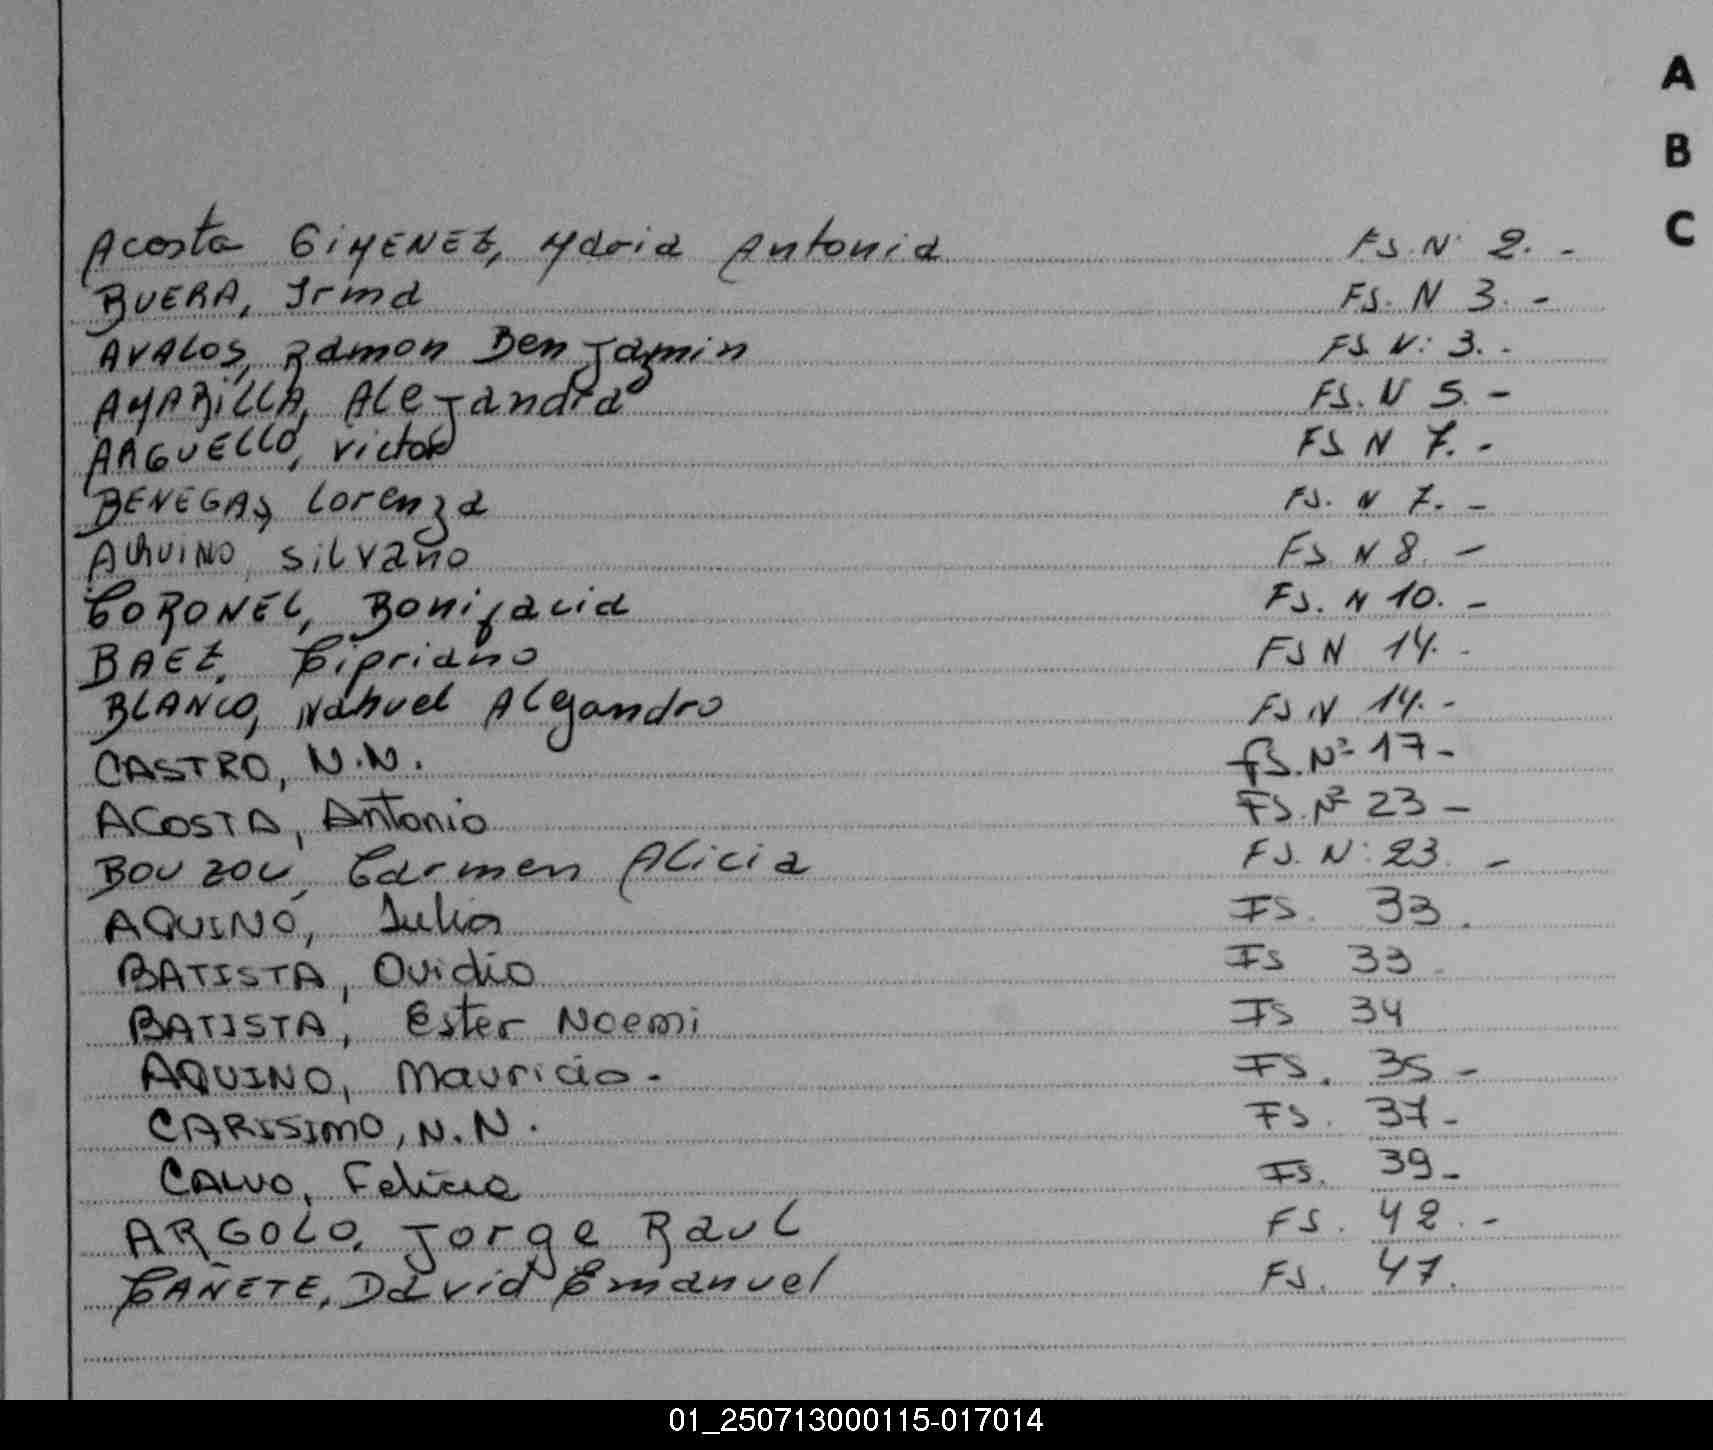 A
B
C
Acosta GIMENEZ, Maria Antonia FS. Nº 2. -
BUERA, Irma FS. N 3. -
AVALOS, Ramon Benjamin FS. Nº 3. -
AMARILLA, Alejandra FS. N 5. -
ARGUELLO, Victor FS N 7. -
BENEGAS, Lorenza FS. N 7. -
AQUINO, Silvano FS N 8. -
CORONEL, Bonifacia FS. N 10. -
BAEZ, Cipriano FS N 14. -
BLANCO, Nahuel Alejandro FS N 14. -
CASTRO, N.N. fS. Nº 17 -
ACOSTA, Antonio FS. Nº 23 -
BOUZOU, Carmen Alicia FS. Nº 23. -
AQUINO, Julia FS. 33.
BATISTA, Ovidio FS 33
BATISTA, Ester Noemi FS 34
AQUINO, Mauricio. FS. 35 -
CARISSIMO, N.N. FS. 37 -
CALVO, FS. 39 -
ARGOLO, Jorge Raul FS. 42. -
CAÑETE, David Emanuel FS. 47.
01_250713000115-017014